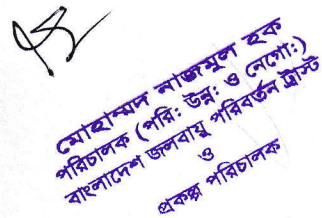 মোহাম্মদ নাজমুল হক
পরিচালক (পরি: উন্ন: ও নেগো:)
বাংলাদেশ জলবায়ু পরিবর্তন ট্রাস্ট
ও
প্রকল্প পরিচালক